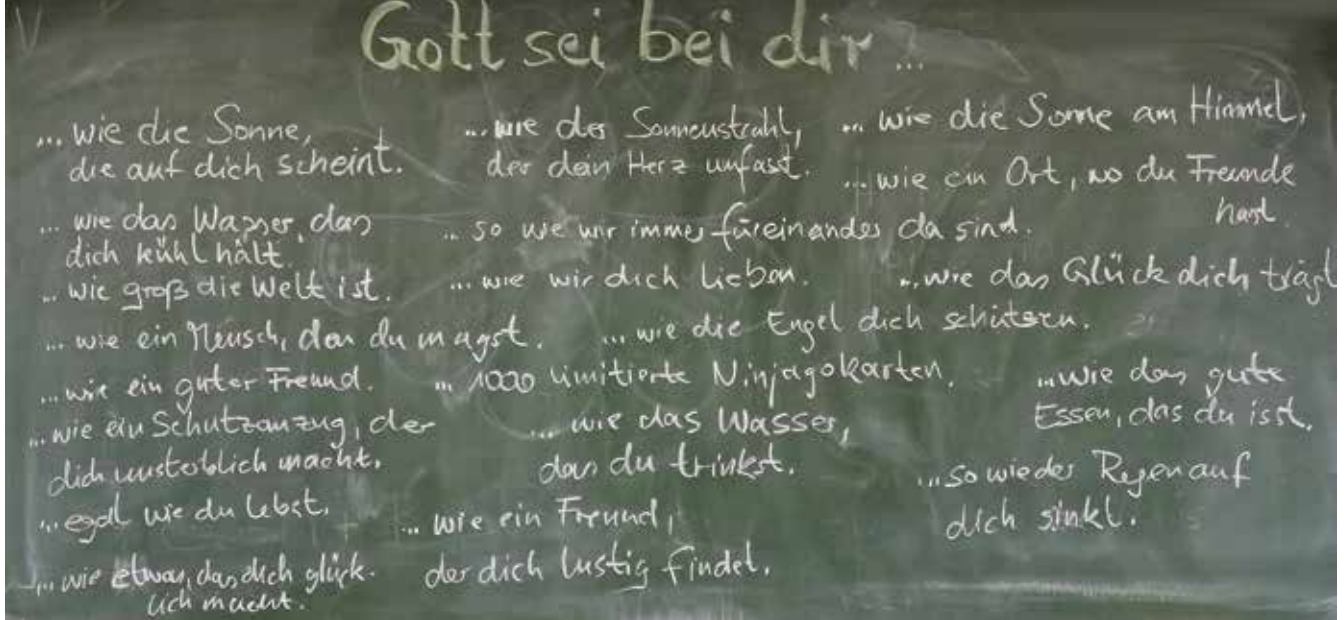 Gott sei bei dir...
... wie die Sonne,
die auf dich scheint.
... wie der Sonnenstrahl,
der dein Herz umfasst.
... wie die Sonne am Himmel.
... wie ein Ort, wo du Freunde
hast.
... wie das Wasser, das
dich kühl hält.
... so wie wir immer füreinander da sind.
... wie groß die Welt ist.
... wie wir dich lieben.
... wie das Glück dich trägt
... wie ein Mensch, den du magst.
... wie die Engel dich schützen.
... wie ein guter Freund.
... 1000 limitierte Ninjagokarten.
... wie das gute
Essen, das du isst.
... wie ein Schutzanzug, der
dich unsterblich macht.
... wie das Wasser,
das du trinkst.
... so wie der Regen auf
dich sinkt.
... egal wie du lebst.
... wie ein Freund,
der dich lustig findet.
... wie etwas, das dich glück-
lich macht.